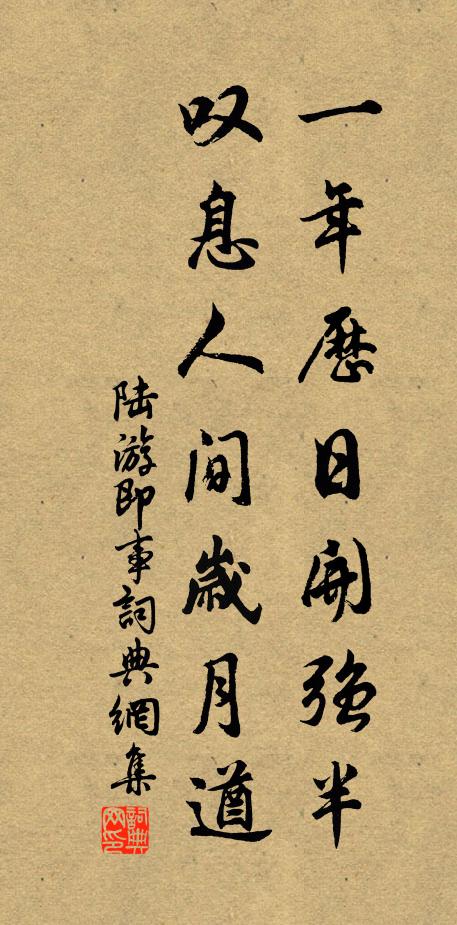 一年歷日開強半
叹息人间歲月遒
陆游即事詞典網集
詞典网印